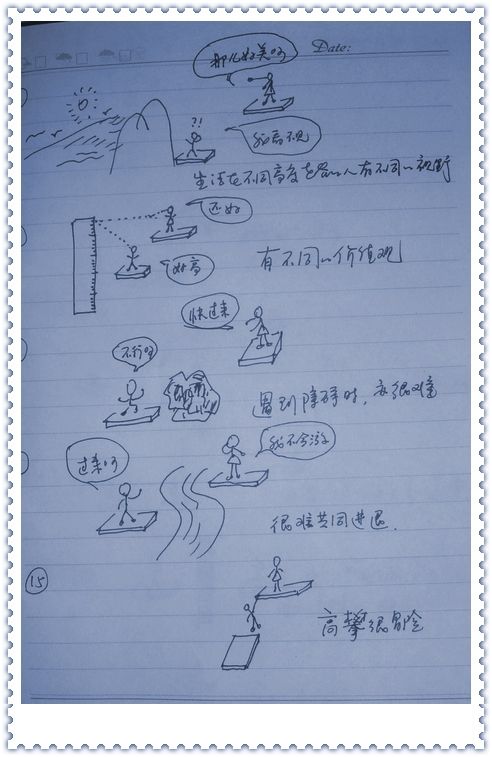 Date:
那儿好美呀
?!
我看不见
生活在不同高度的人有不同的视野
还好
好高
有不同的价值观
快过来
不行呀
遇到障碍时,亦很难
我不会游
过来呀
很难共同进退.
15
高攀很冒险